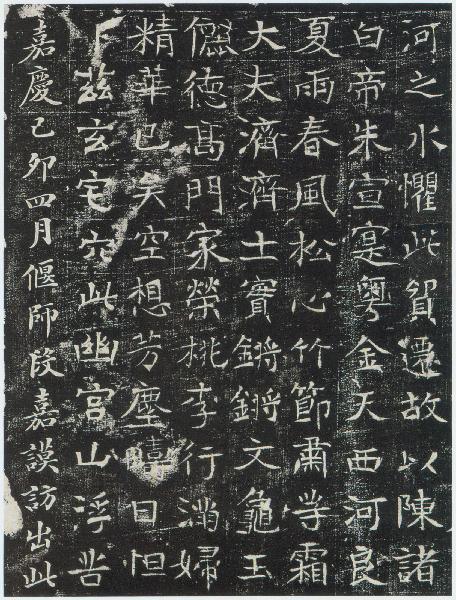 河之水懼此貿遷故以陳諸
白帝朱宣寔粤金天西河良
夏雨春風松心竹節肅等霜
大夫濟濟士實鏘鏘文龜玉
儷德高門家榮桃李行滿婦
精華已矣空想芳塵日怛
下茲玄宅穴此幽宫山浮苦
嘉慶己卯四月偃師段嘉謨訪出此